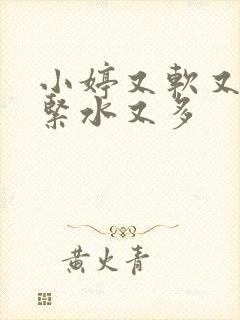 小婷又軟又
緊水又多
黄火青